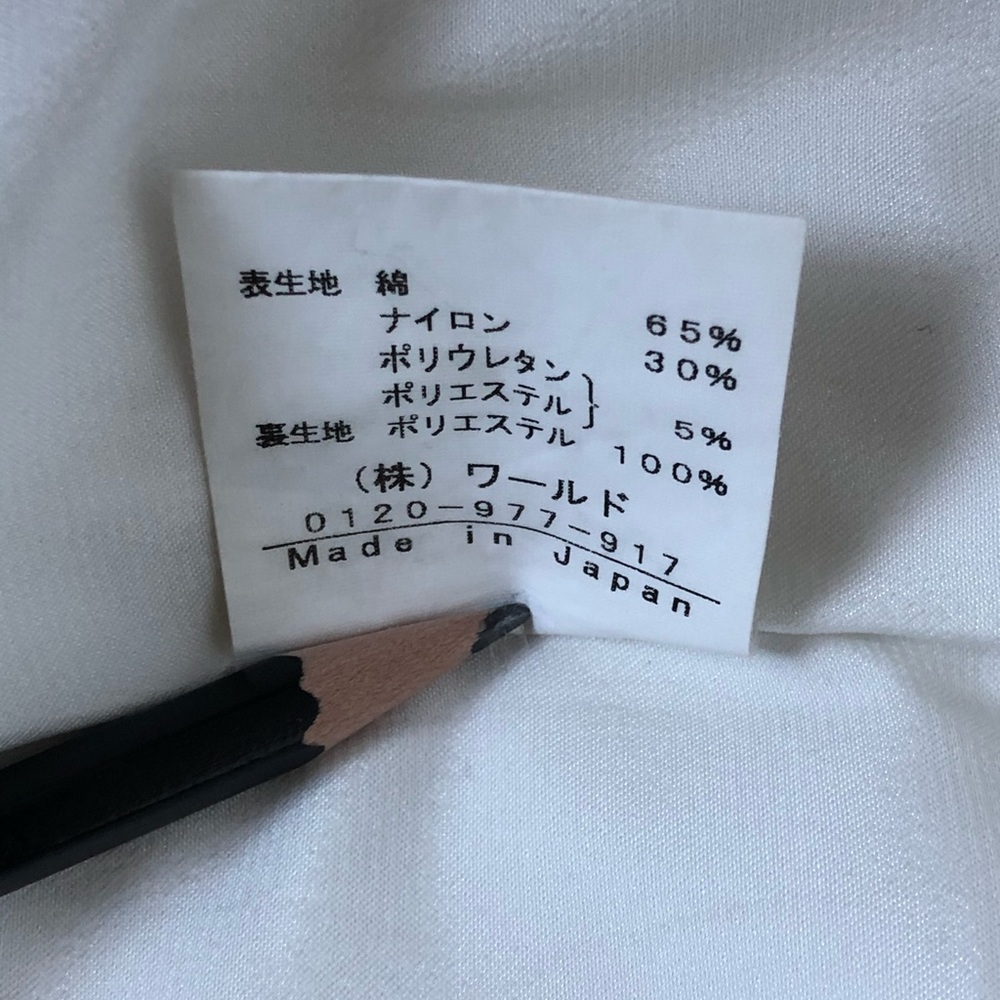 表生地 綿 65%
ナイロン 30%
ポリウレタン
ポリエステル} 5%
裏生地 ポリエステル 100%
(株) ワールド
0120-977-917
Made in Japan